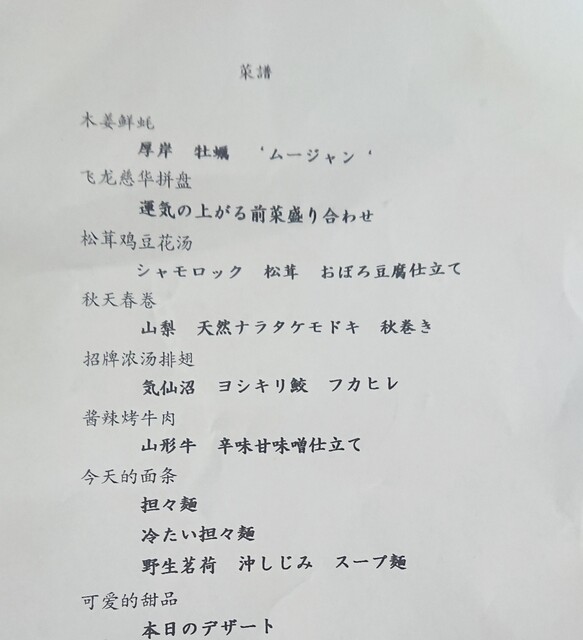 菜譜
木姜鲜蚝
厚岸　牡蠣　‘ムージャン‘
飞龙慈华拼盘
運気の上がる前菜盛り合わせ
松茸鸡豆花汤
シャモロック　松茸　おぼろ豆腐仕立て
秋天春卷
山梨　天然ナラタケモドキ　秋巻き
招牌浓汤排翅
気仙沼　ヨシキリ鮫　フカヒレ
酱辣烤牛肉
山形牛　辛味甘味噌仕立て
今天的面条
担々麺
冷たい担々麺
野生茗荷　沖しじみ　スープ麺
可爱的甜品
本日のデザート